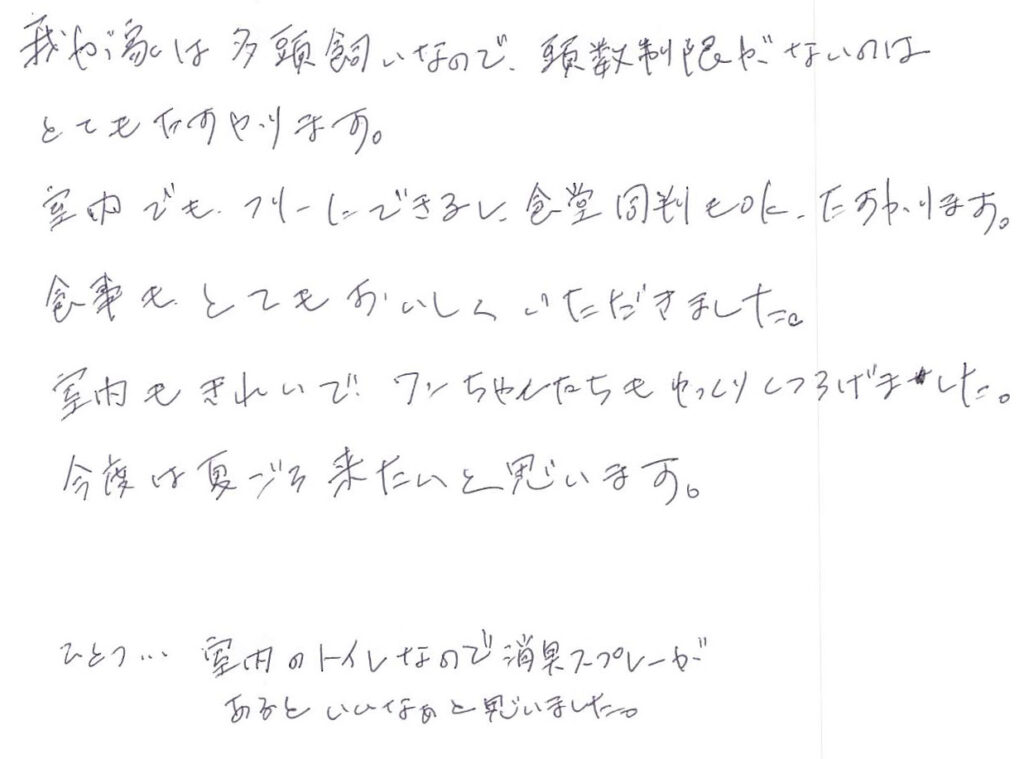 我が家は多頭飼いなので、頭数制限がないのは
とてもたすかります。
室内でも、フリーにできるし、食堂同判もOK、たすかります。
食事も、とてもおいしくいただきました。
室内もきれいで、ワンちゃんたちもゆっくりくつろげました。
今度は夏ごろ来たいと思います。
ひとつ… 室内のトイレなので消臭スプレーが
あるといいなぁと思いました。